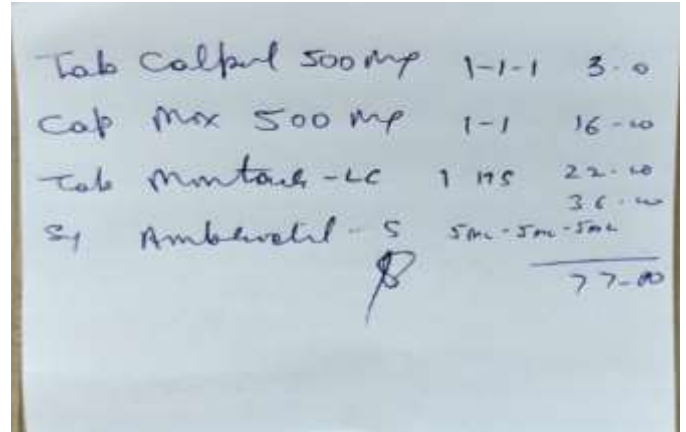 Tab Calpol 500 mg 1-1-1 3-0
Cap Mox 500 mg 1-1 16-00
Tab Montair-LC 1 HS 22-00
36-00
Sy - S 5ml-5ml-5ml
77-00